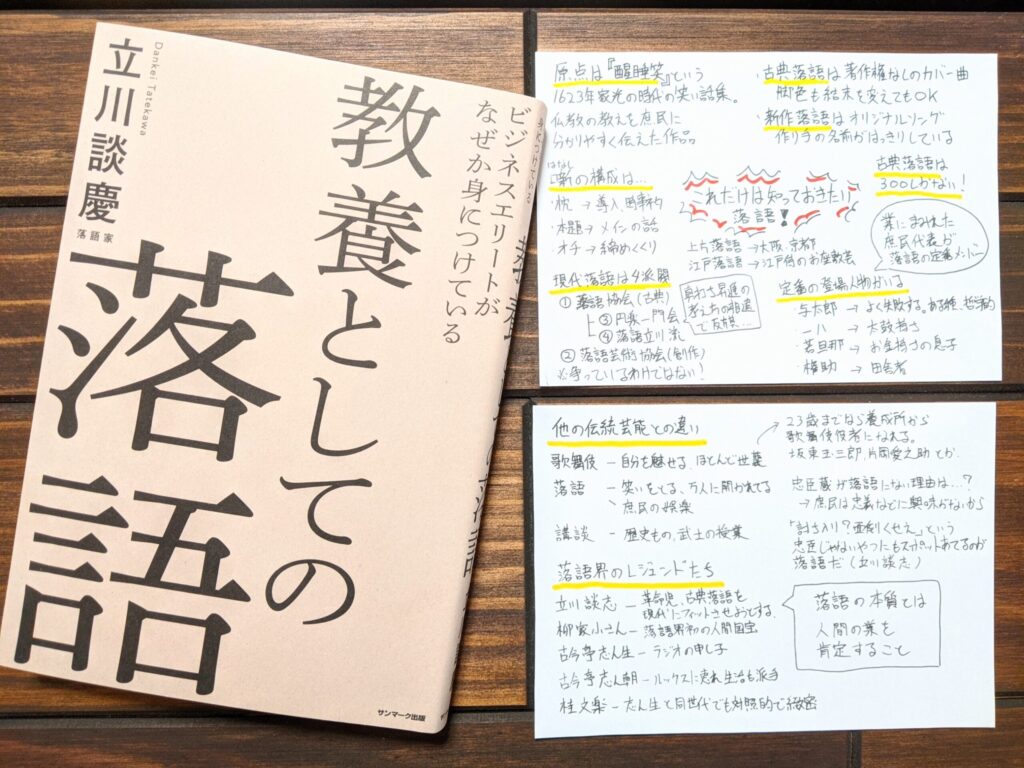 立川談慶
Dankei Tatekawa
落語家
教養としての
落語
ビジネスエリートが
なぜか身につけている
サンマーク出版
原点は『醒睡笑』という
1623年家光の時代の笑い話集。
仏教の教えを庶民に
分かりやすく伝えた作品
はなし
噺の構成は…
・枕 → 導入、
・本題 → メインの話
・オチ → 締めくくり
現代落語は4派閥
① 落語協会(古典)
③ 円楽一門会
④ 落語立川流
② 落語芸術協会(創作)
※争っているわけではない!
真打ち昇進の
考え方の相違
で反旗…
これだけは知っておきたい
落語!
上方落語 → 大阪、京都
江戸落語 → 江戸前のお座敷芸
古典落語は著作権なしのカバー曲
脚色も結末を変えてもOK
新作落語はオリジナルソング
作り手の名前がはっきりしている
古典落語は
300しかない!
業にまみれた
庶民代表が
落語の定番メンバー
定番の登場人物がいる
・与太郎 → よく失敗する。
・一八 → 太鼓持ち
・若旦那 → お金持ちの息子
・権助 → 田舎者
他の伝統芸能との違い
歌舞伎 ー 自分を魅せる、ほとんど世襲
落語 ー 笑いをとる、万人に開かれてる
庶民の娯楽
講談 ー 歴史もの、武士の授業
23歳までなら養成所から
歌舞伎役者になれる。
坂東玉三郎、片岡愛之助とか
忠臣蔵が落語にない理由は…?
→ 庶民は忠義などに興味がないから
「討ち入り?面倒くせえ」という
忠臣じゃないやつにもスポットあてるのが
落語だ(立川談志)
落語界のレジェンドたち
立川談志 ー 革命児、古典落語を
現代にフィットさせようとする。
柳家小さん ー 落語界初の人間国宝
古今亭志ん生 ー ラジオの申し子
古今亭志ん朝 ー ルックスに恵れ生活も派手
桂文楽 ー 志ん生と同世代でも対照的で緻密
落語の本質とは
人間の業を
肯定すること